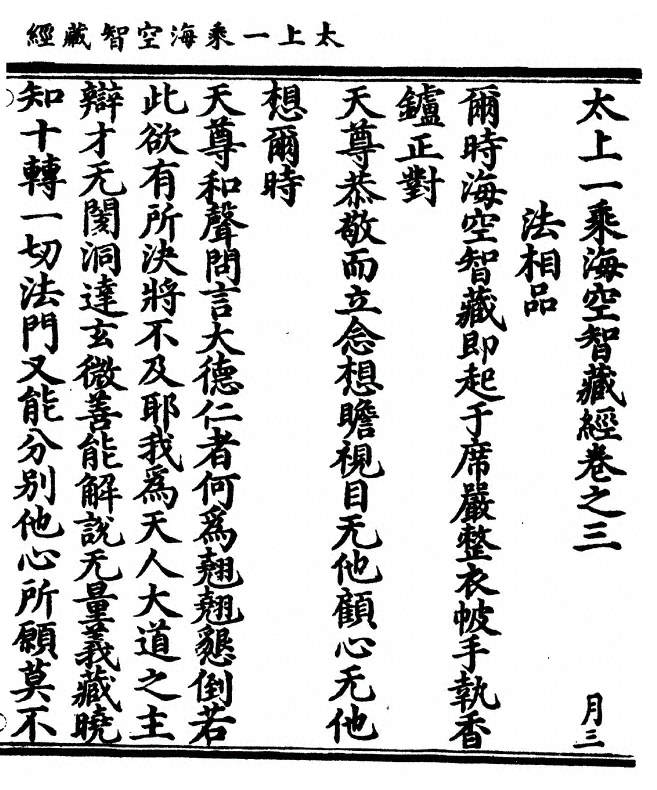 太上一乘海空智藏經
太上一乘海空智藏經卷之三 月三
法相品
爾時海空智藏即起于席嚴整衣帔手執香
鑪正對
天尊恭敬而立念想瞻視目无他顧心无他
想爾時
天尊和聲問言大德仁者何爲翹翹懇倒若
此欲有所決將不及耶我爲天人大道之主
辯才无閡洞達玄微善能解說无量義藏曉
知十轉一切法門又能分別他心所願莫不